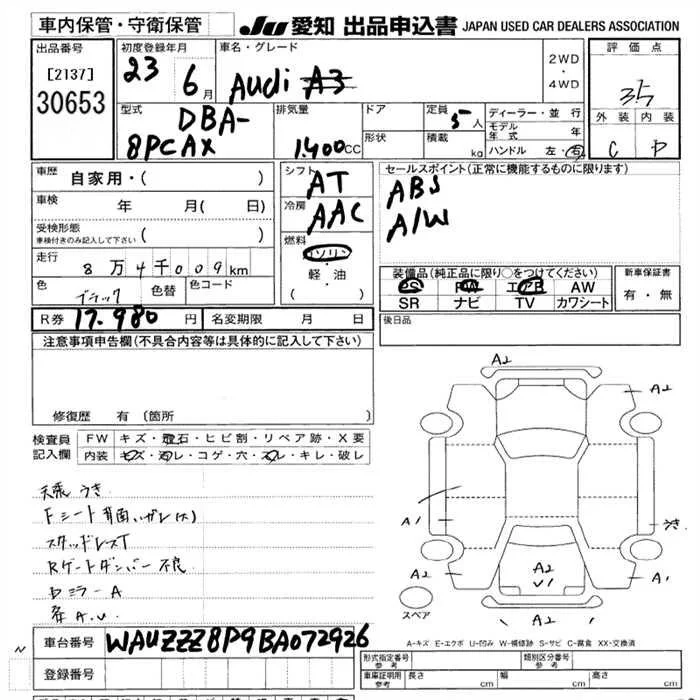 車内保管・守衛保管
JU 愛知 出品申込書 JAPAN USED CAR DEALERS ASSOCIATION
出品番号
[2137]
30653
初度登録年月
23 6月
車名・グレード
Audi A3
2WD
・
4WD
評価点
3.5
外装 内装
C D
型式
DBA-
8PCAX
排気量
1.400cc
ドア
形状
定員
5人
積載
kg
ディーラー・並行
モデル年式 年
ハンドル 左・右
車歴 自家用・( )
車検 年 月( 日)
受検形態
車検付きのみ記入して下さい ( )
走行 8万4千009km
色 ブラック 色替 色コード
シフト
AT
冷房
AAC
燃料
ガソリン
・
軽油
( )
セールスポイント(正常に機能するものに限ります)
ABS
A/W
装備品(純正品に限り○をつけてください)
PS PW エアB AW
SR ナビ TV カワシート
新車保証書
有・無
R券 17.980円 名変期限 月 日
後日品
注意事項申告欄(不具合内容等は具体的に記入して下さい)
修復歴 有(箇所 )
検査員
記入欄
FW キズ・飛石・ヒビ割・リペア跡・X要
内装 キズ・汚レ・コゲ・穴・スレ・キレ・破レ
天張うき
Fシート背面ハガレ(大)
スタッドレスT
Rゲートダンパー不良
ミラーA
A.U.
A2
A2
A1
A2
A2
U1
A1
A2
スペア
A-キズ E-エクボ U-凹み W-補修跡 S-サビ C-腐食 XX-交換済
車台番号 WAUZZZ8P9BA072926
登録番号
形式指定番号
参考
類別区分番号
参考
車庫証明用
参考
長さ cm 幅 cm 高さ cm